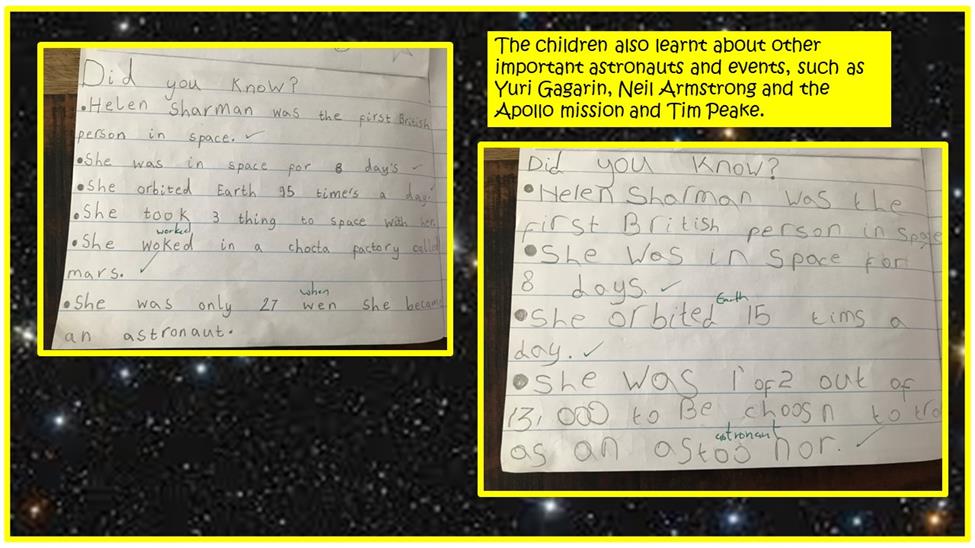 Did you know?
•Helen Sharman was the first British
person in space.
•She was in space for 8 day's
•She orbited Earth time's a day.
•She took 3 thing to space with her.
worked
•She woked in a chocta factory called
mars.
when
•She was only 27 wen she became
an astronaut.
The children also learnt about other
important astronauts and events, such as
Yuri Gagarin, Neil Armstrong and the
Apollo mission and Tim Peake.
Did you know?
•Helen Sharman was the
first British person in space
•She was in space for
8 days.
Earth
•She orbited 15 tims a
day.
•She was 1 of 2 out of
13,000 to Be choosn to
astronaut
as an astoo nor.